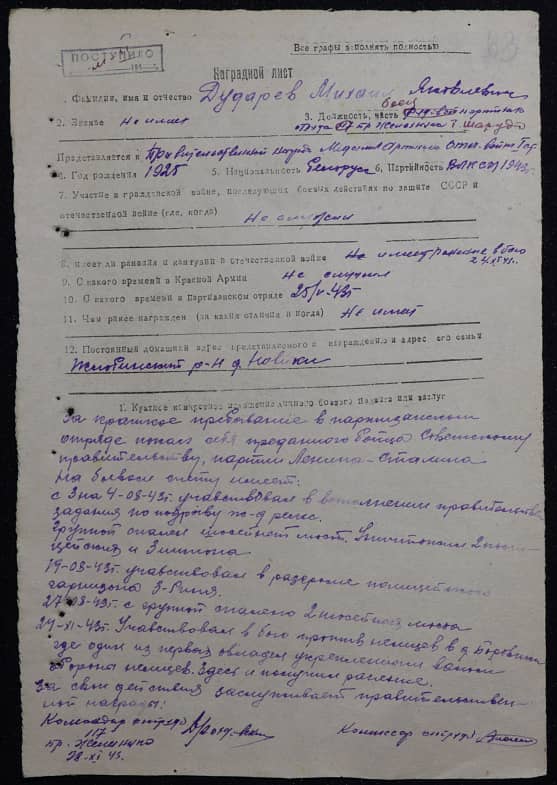 Все графы заполнять полностью
ПОСТУПИЛО
Наградной лист
1. Фамилия, имя и отчество Дударев Михаил Яковлевич
2. Звание не имеет 3. Должность, часть боец
Представляется к
4. Год рождения 1925 5. Национальность Белорус 6. Партийность ВЛКСМ 1943г.
7. Участие в гражданской войне, последующих боевых действиях по защите СССР и
отечественной войне (где, когда) Не служил
8. Имеет ли ранения и контузии в отечественной войне Не имеет ранение в бою
9. С какого времени в Красной Армии не служил
10. С какого времени в Партизанском отряде 43г
11. Чем ранее награжден (за какие отличия и когда) Не имеет
12. Постоянный домашний адрес представляемого к награждению и адрес его семьи
Жлобинский р-н д. Новики
1. Краткое конкретное изложение личного боевого подвига или заслуг
За краткое пребывание в партизанском
отряде показал себя преданного бойца Советскому
правительству, партии Ленина-Сталина
На боевом счету имеет:
с 3 на 4-08-43г. участвовал в выполнении правительств.
задания по подрыву ж-д рельс.
Группой спалил шоссейный мост. Уничтожили 2 поли-
цейских и шпиона
19-08-43г. участвовал в разгроме полицейского
гарнизона
27-08-43г. с группой спалено 2 шоссейных моста
24-XI-43г. Участвовал в бою против немцев в д.
где один из первых овладел укреплениями
обороны немцев. Здесь и получил ранение.
За свои действия заслуживает правительствен-
ной награды:
Командир отряда Комиссар отряда
117
28-XI 43.